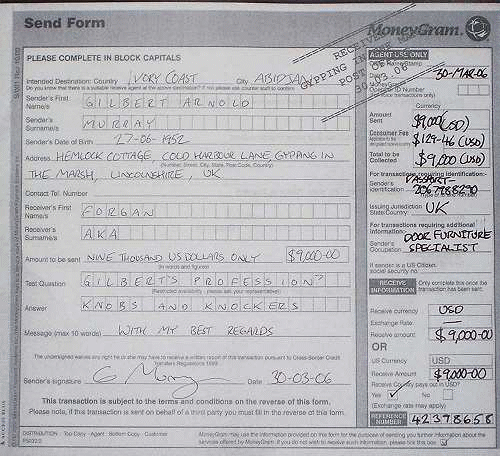 Send Form
MoneyGram
PLEASE COMPLETE IN BLOCK CAPITALS
Intended Destination: Country IVORY COAST City ABIDJAN
Sender's First Name/s GILBERT ARNOLD
Sender's Surname/s MURRAY
Sender's Date of Birth 27-06-1952
Address HEMLOCK COTTAGE, COLD HARBOUR LANE, GYPPING IN
(Number, Street, City, State, Post Code, Country)
THE MARSH, LINCOLNSHIRE, UK
Contact Tel. Number
Receiver's First Name/s FORGAN
Receiver's Surname/s AKA
Amount to be sent NINE THOUSAND US DOLLARS ONLY $9,000-00
(In words and figures)
Test Question GILBERT'S PROFESSION?
Answer KNOBS AND KNOCKERS
Message (max 10 words) WITH MY BEST REGARDS
Sender's signature G Murray Date 30-03-06
This transaction is subject to the terms and conditions on the reverse of this form.
Please note, if this transaction is sent on behalf of a third party you must fill in the reverse of this form.
DISTRIBUTION Top Copy - Agent Bottom Copy - Customer
MoneyGram may use the information provided on this form for the purpose of sending you further information about the
services offered by MoneyGram. If you do not wish to receive such information, please tick this box
RECEIVED
GYPPING IN
POST OFFICE
AGENT USE ONLY
30-MAR-06
Currency
Amount Sent $9,000 (USD)
Consumer Fee $129-46 (USD)
Total to be Collected $9,000 (USD)
For transactions requiring identification:
Sender's Identification PASSPORT-
Issuing Jurisdiction State/Country: UK
For transactions requiring additional information:
Sender's Occupation DOOR FURNITURE SPECIALIST
If sender is a US Citizen,
social security no.
RECEIVE INFORMATION Only complete this once the transaction has been sent.
Receive currency USD
Exchange Rate
Receive amount $9,000-00
OR
US Currency USD
Receive Amount $9,000-00
Receive Country pays out in USD?
Yes ✓ No
(Exchange rate may apply)
REFERENCE NUMBER 42378658